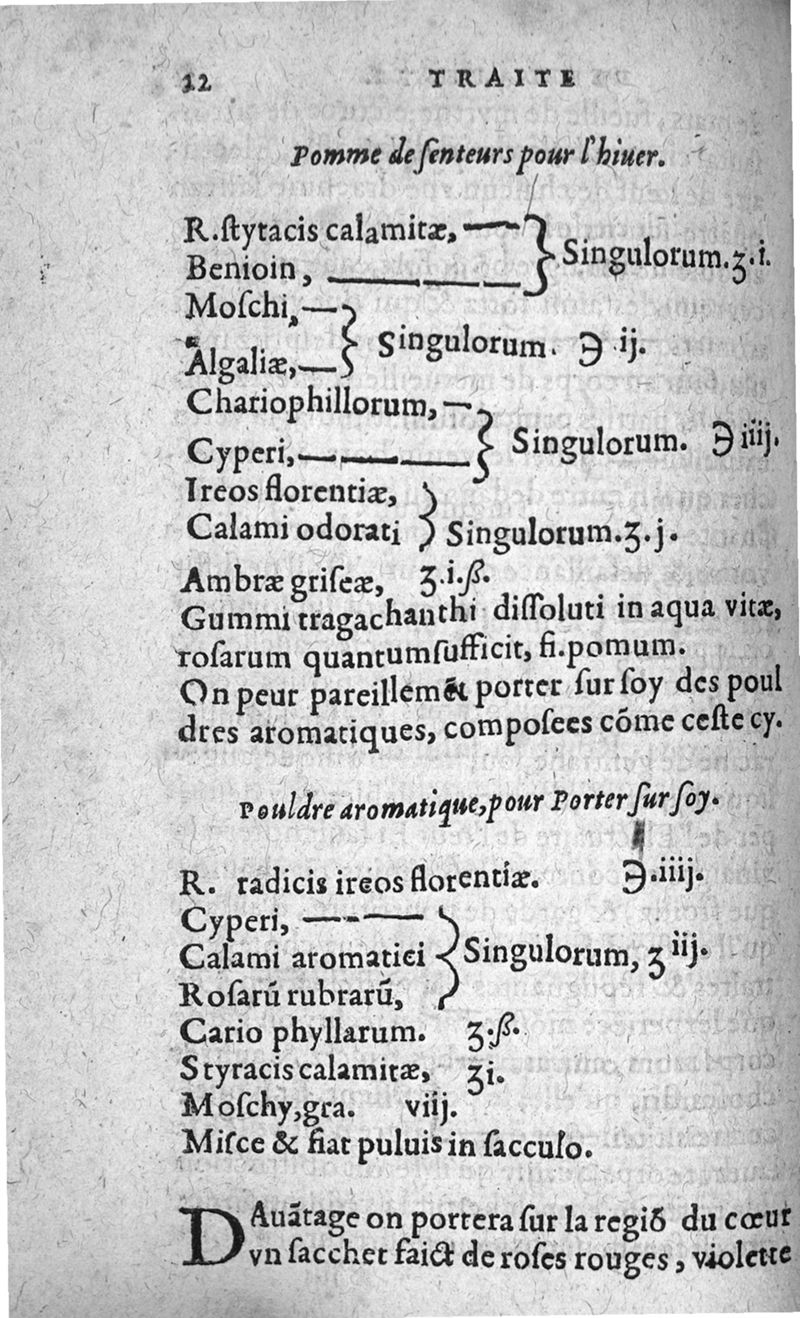 22 TRAITE
Pomme de ſenteurs pour l'hiuer.
R. ſtytacis calamitæ, } Singulorum. ʒ. i.
Benioin,
Moſchi, } Singulorum. ℈ ij.
Algaliæ,
Chariophillorum, } Singulorum. ℈ iiij.
Cyperi,
Ireos florentiæ,
Calami odorati } Singulorum. ʒ. j.
Ambræ griſeæ, ʒ. i. ß.
Gummi tragachanthi diſſoluti in aqua vitæ,
roſarum quantumſufficit, fi. pomum.
On peur pareillemẽt porter ſur ſoy des poul
dres aromatiques, compoſees cõme ceſte cy.
Pouldre aromatique, pour Porter ſur ſoy.
R. radicis ireos florentiæ. ℈. iiij.
Cyperi,
Calami aromatici } Singulorum, ʒ iij.
Roſarũ rubrarũ,
Cario phyllarum. ʒ. ß.
Styracis calamitæ, ʒi.
Moſchy, gra. viij.
Miſce & fiat puluis in ſacculo.
DAuãtage on portera ſur la regiõ du cœur
vn ſacchet faict de roſes rouges, violette